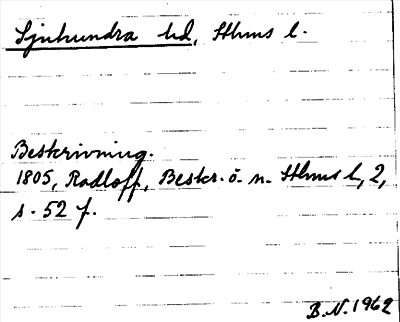 Sjuhundra hd, Sthms l.
Beskrivning.
1805, Radloff, Beskr. ö. n. Sthms l, 2,
s. 52 f.
B.N. 1962